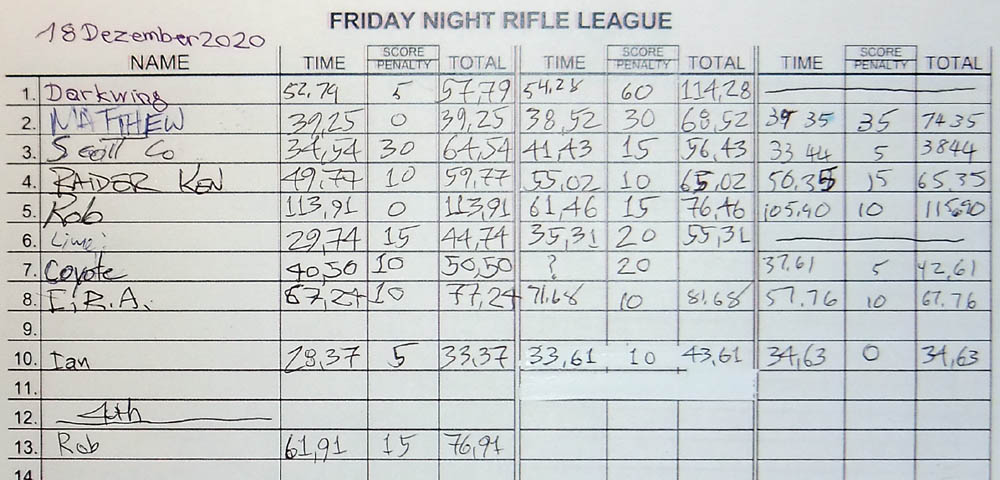 FRIDAY NIGHT RIFLE LEAGUE
18 Dezember 2020
NAME TIME SCORE PENALTY TOTAL TIME SCORE PENALTY TOTAL TIME SCORE PENALTY TOTAL
1. Darkwing 52,79 5 57,79 54,28 60 114,28
2. MATTHEW 39,25 0 39,25 38,52 30 68,52 39 35 35 74 35
3. Co 34,54 30 64,54 41,43 15 56,43 33 44 5 3844
4. RAIDER KEN 49,77 10 59,77 55,02 10 65,02 50.35 15 65.35
5. Rob 113,91 0 113,91 61,46 15 76,46 105.90 10 115.90
6. 29,74 15 44,74 35,31 20 55,31
7. Coyote 40,50 10 50,50 ? 20 37.61 5 42,61
8. E.R.A. 67,24 10 77,24 71.68 10 81.68 57.76 10 67.76
9.
10. Ian 28,37 5 33,37 33,61 10 43,61 34,63 0 34,63
11.
12. 4th
13. Rob 61,91 15 76,91
14.